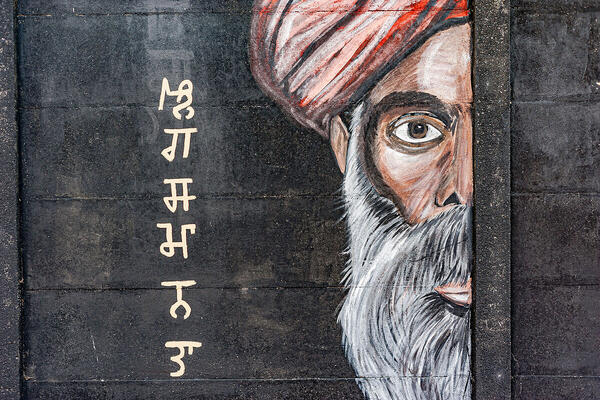 ਗ
ਸ
ਮਾ
ਨ
ਤਾ